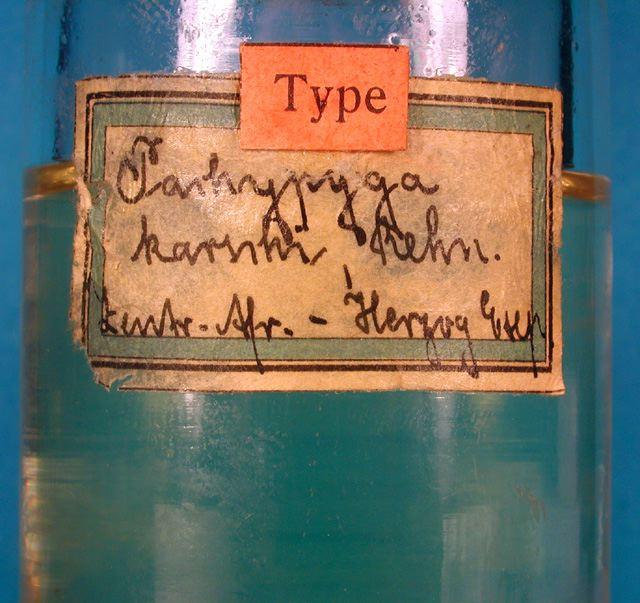 Type
Pachypyga
karschi Rehn.
Zentr.-Afr. - Herzog Exp